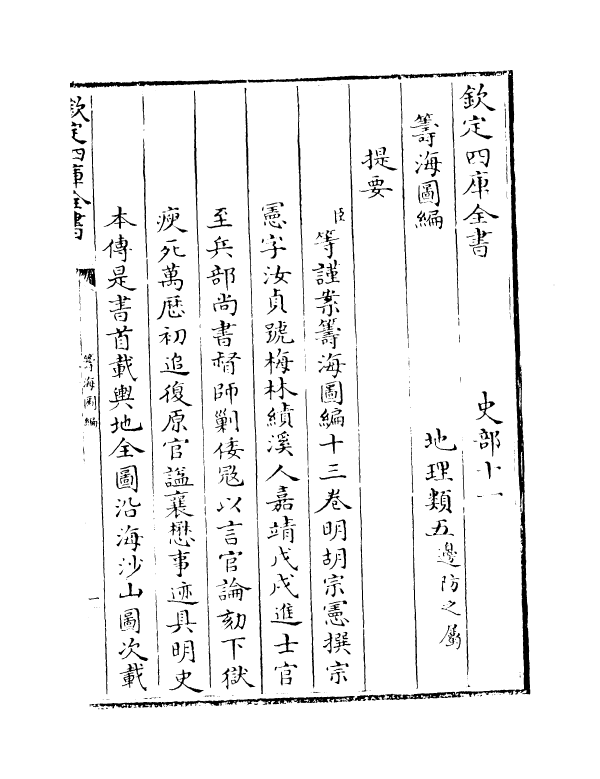 欽定四庫全書　史部十一
籌海圖編　地理類五邊防之屬
提要
臣等謹案籌海圖編十三卷明胡宗憲撰宗
憲字汝貞號梅林績溪人嘉靖戊戌進士官
至兵部尚書督師剿倭寇以言官論劾下獄
瘐死萬歴初追復原官諡襄懋事迹具明史
本傳是書首載輿地全圖沿海沙山圖次載
欽定四庫全書
籌海圖編
一